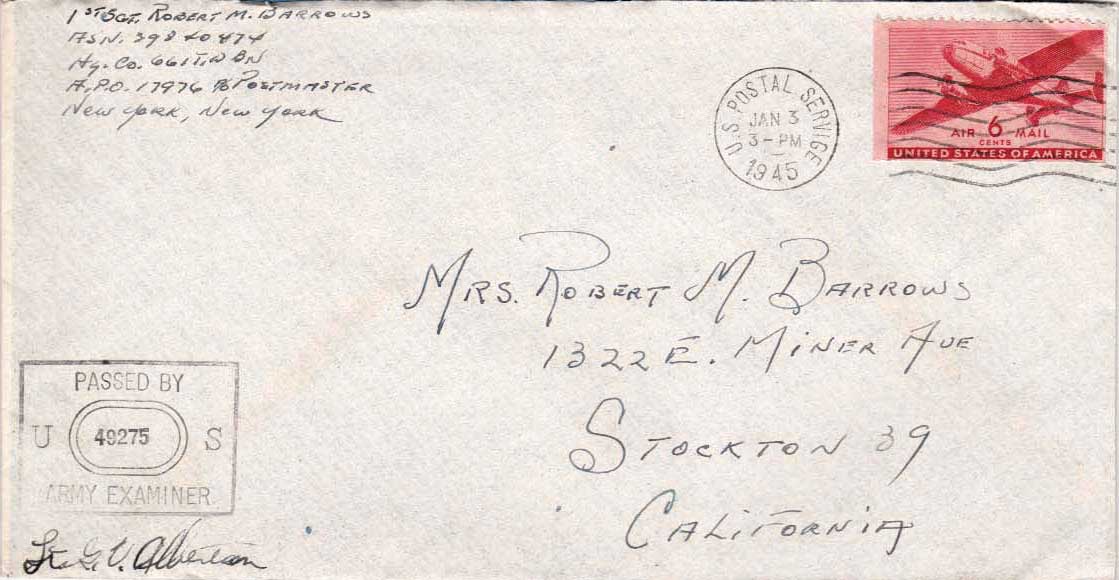 1ST SGT. ROBERT M. BARROWS
ASN. 39840474
Hq. Co. 661 T.D BN
A.P.O. 17976 % POSTMASTER
NEW YORK, NEW YORK
U.S. POSTAL SERVICE
JAN 3
3-PM
1945
AIR 6 MAIL
CENTS
UNITED STATES OF AMERICA
MRS. ROBERT M. BARROWS
1322 E. MINER AVE
STOCKTON 39
CALIFORNIA
PASSED BY
U 49275 S
ARMY EXAMINER
Lt. G. V. Albertson